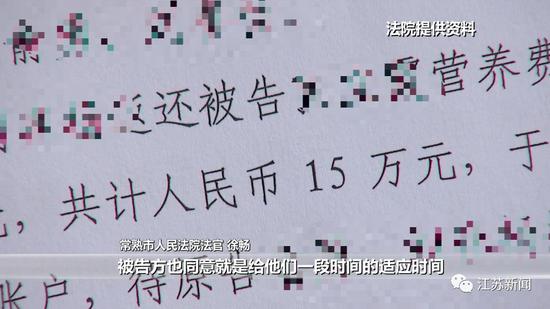 法院提供资料
还被告
营养费
共计人民币 15 万元，于
常熟市人民法院法官 徐畅
被告方也同意就是给他们一段时间的适应时间
账户，待原告
江苏新闻